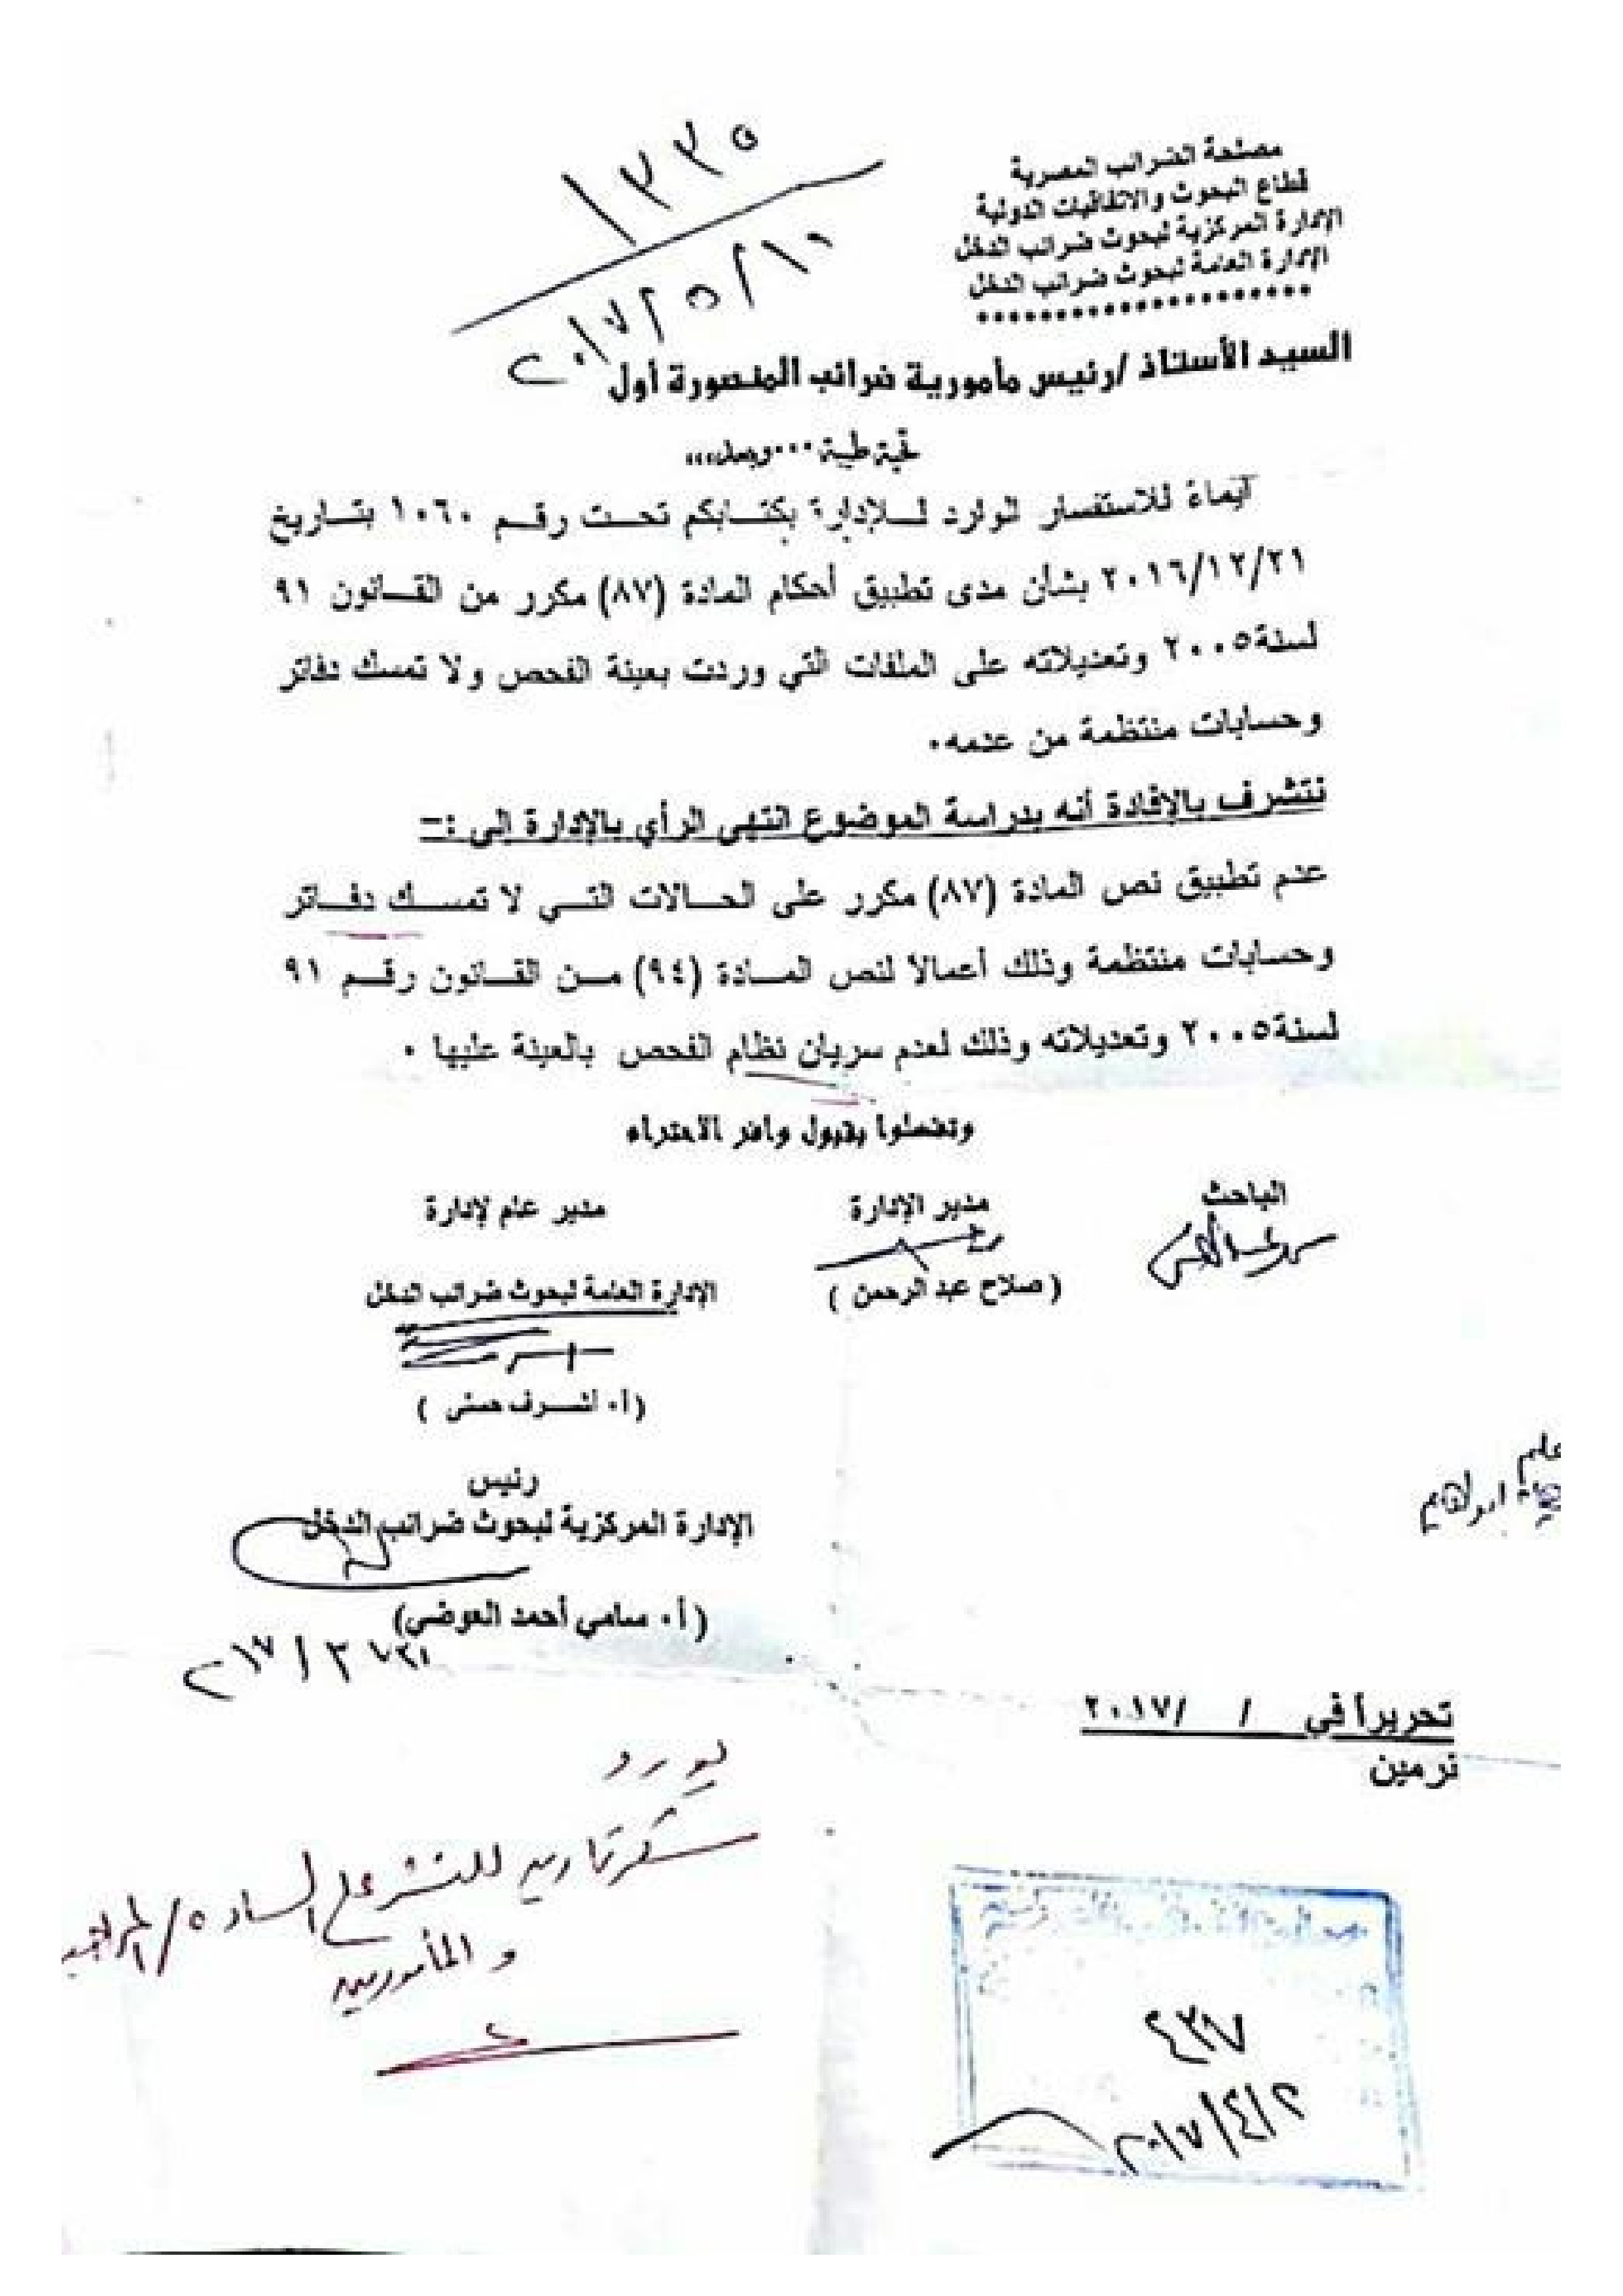 ١٣٣٥
٢٠١٧/٥/١٠
مصلحة الضرائب المصرية
قطاع البحوث والاتفاقيات الدولية
الإدارة المركزية لبحوث ضرائب الدخل
الإدارة العامة لبحوث ضرائب الدخل
السيد الأستاذ /رئيس مأمورية ضرائب المنصورة أول
تحية طيبة ... وبعد،،،
آيماءً للاستفسار الوارد للإدارة بكتابكم تحت رقم ١٠٦٠ بتاريخ
٢٠١٦/١٢/٢١ بشأن مدى تطبيق أحكام المادة (٨٧) مكرر من القانون ٩١
لسنة٢٠٠٥ وتعديلاته على الملفات التي وردت بعينة الفحص ولا تمسك دفاتر
وحسابات منتظمة من عدمه٠
نتشرف بالإفادة أنه بدراسة الموضوع انتهى الرأي بالإدارة إلى :-
عدم تطبيق نص المادة (٨٧) مكرر على الحالات التي لا تمسك دفاتر
وحسابات منتظمة وذلك أعمالا لنص المادة (٩٤) من القانون رقم ٩١
لسنة٢٠٠٥ وتعديلاته وذلك لعدم سريان نظام الفحص بالعينة عليها ٠
وتفضلوا بقبول وافر الاحترام
الباحث
مدير الإدارة
(صلاح عبد الرحمن )
مدير عام لإدارة
الإدارة العامة لبحوث ضرائب الدخل
(أ٠ أشرف حسنى )
رئيس
الإدارة المركزية لبحوث ضرائب الدخل
(أ٠ سامي أحمد العوضي)
ابراهيم
تحريراً في / /٢٠١٧
نرمين
يورد
سكرتارية للنشر على السادة/المراجعين
و المأمورين
٤٣٧
٢٠١٧/٤/٢